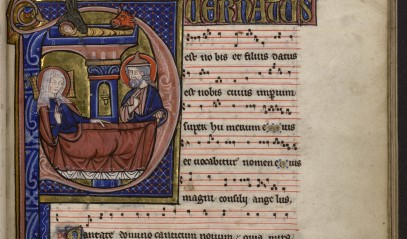 PUERNATUS
est no bis et filius datus
est nobis cuius imperium
super hu merum eius
et uocabitur nomen eius
magni consilij ange lus,
Cantate domino canticum nouum